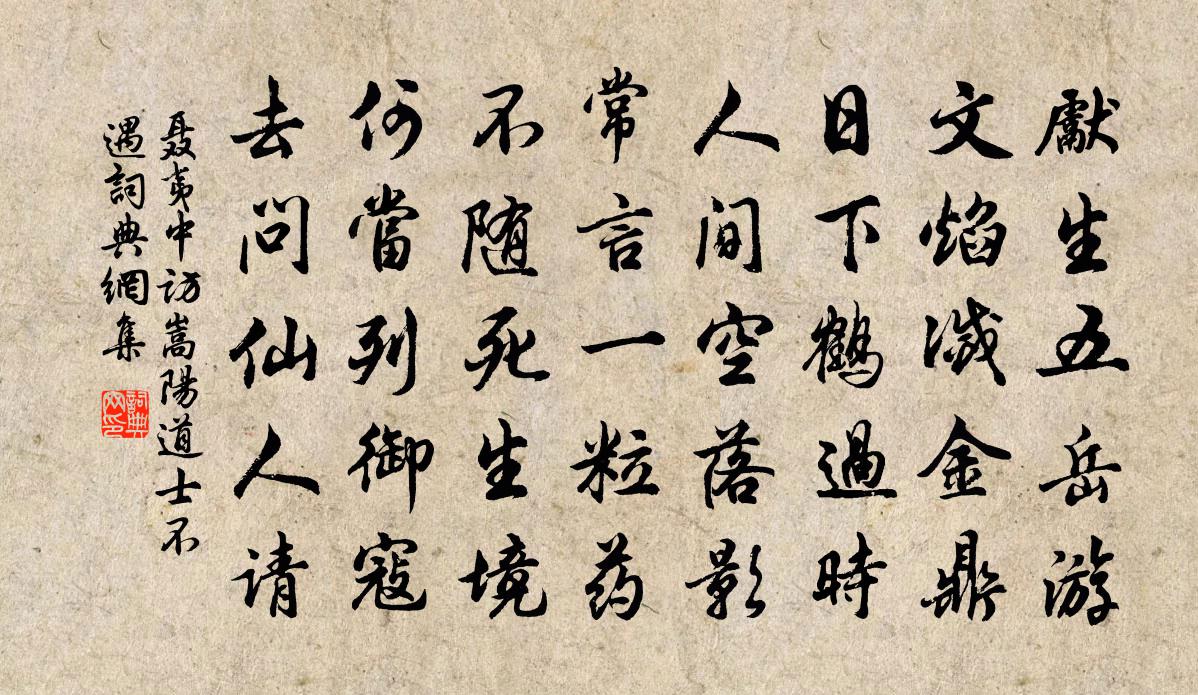 獻生五岳游
文焰滅金鼎
日下鶴過時
人间空落影
常言一粒药
不随死生境
何當列御寇
去问仙人请
聂夷中访嵩陽道士不
遇詞典網集
詞典
网印